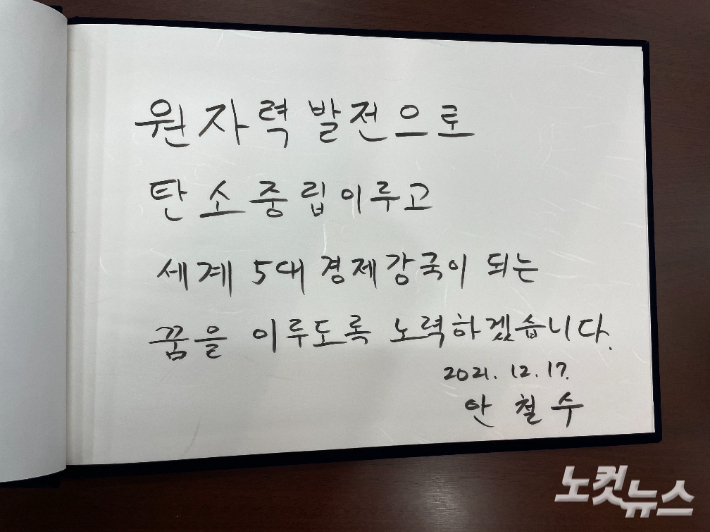 원자력 발전으로
탄소중립 이루고
세계 5대 경제강국이 되는
꿈을 이루도록 노력하겠습니다.
2021. 12. 17.
안 철 수
노컷뉴스